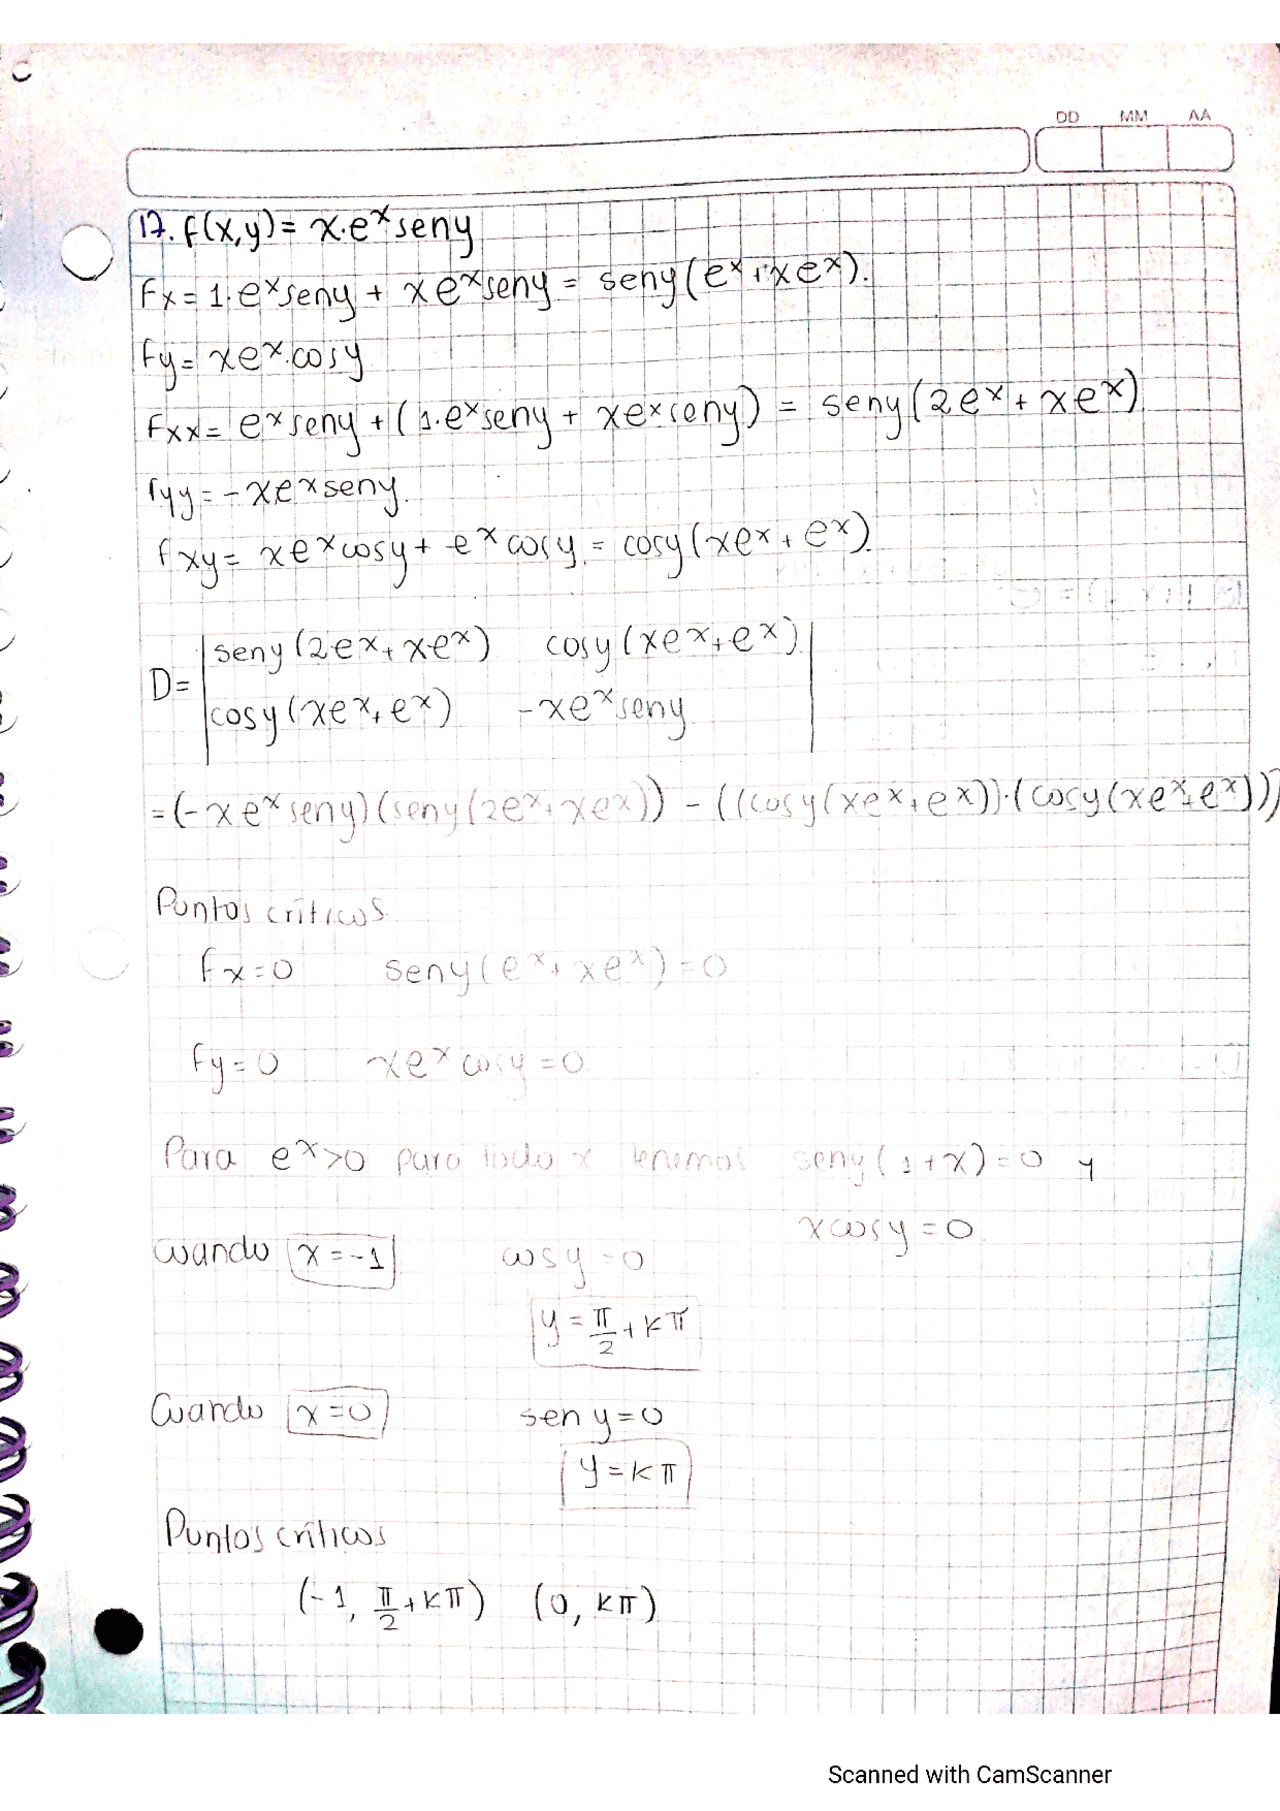 DD MM AA
17. f(x,y)= x·eˣseny
fx= 1·eˣseny + xeˣseny = seny(eˣ+xeˣ).
fy= xeˣ·cosy
fxx= eˣseny +(1·eˣseny + xeˣseny) = seny(2eˣ+xeˣ)
fyy= -xeˣseny.
fxy= xeˣcosy + eˣcosy = cosy(xeˣ+eˣ).
D= | seny(2eˣ+xeˣ) cosy(xeˣ+eˣ) |
| cosy(xeˣ+eˣ) -xeˣseny |
=(-xeˣseny)(seny(2eˣ+xeˣ)) - ((cosy(xeˣ+eˣ))·(cosy(xeˣ+eˣ)))
Puntos críticos
fx=0 seny(eˣ+xeˣ)=0
fy=0 xeˣcosy=0
Para eˣ>0 para todo x tenemos seny(1+x)=0 y
xcosy=0
cuando x=-1 cosy=0
y=π/2+kπ
Cuando x=0 sen y=0
y=kπ
Puntos críticos
(-1, π/2+kπ) (0, kπ)
Scanned with CamScanner